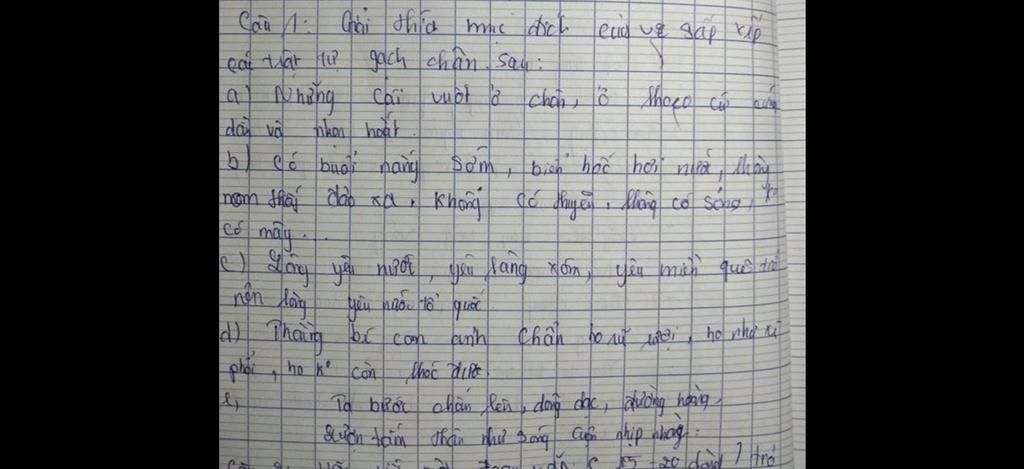 Câu 1: Giải thích mục đích của việc sắp xếp
các trật tự gạch chân sau:
a) Những cái vuốt ở chân, ở khoeo cứ cứng
dần và nhọn hoắt.
b) Có buổi nắng sớm, biển bốc hơi nước, không
nom thấy đảo xa, không có thuyền, không có sóng, k°
có mây...
c) Lòng yêu nước, yêu làng xóm, yêu miền quê trở
nên lòng yêu nước tổ quốc.
d) Thằng bé con anh Chẩn ho rũ rượi, ho như xé
phổi, ho k° còn khóc được.
e, Ta bước chân lên, dõng dạc, đường hoàng
Lượn tấm thân như sóng cuộn nhịp nhàng:
15 - 20 dòng) trở